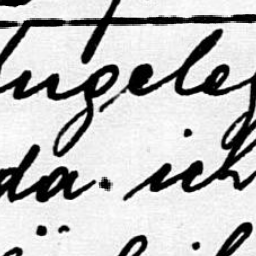 Angeleg
da. ich